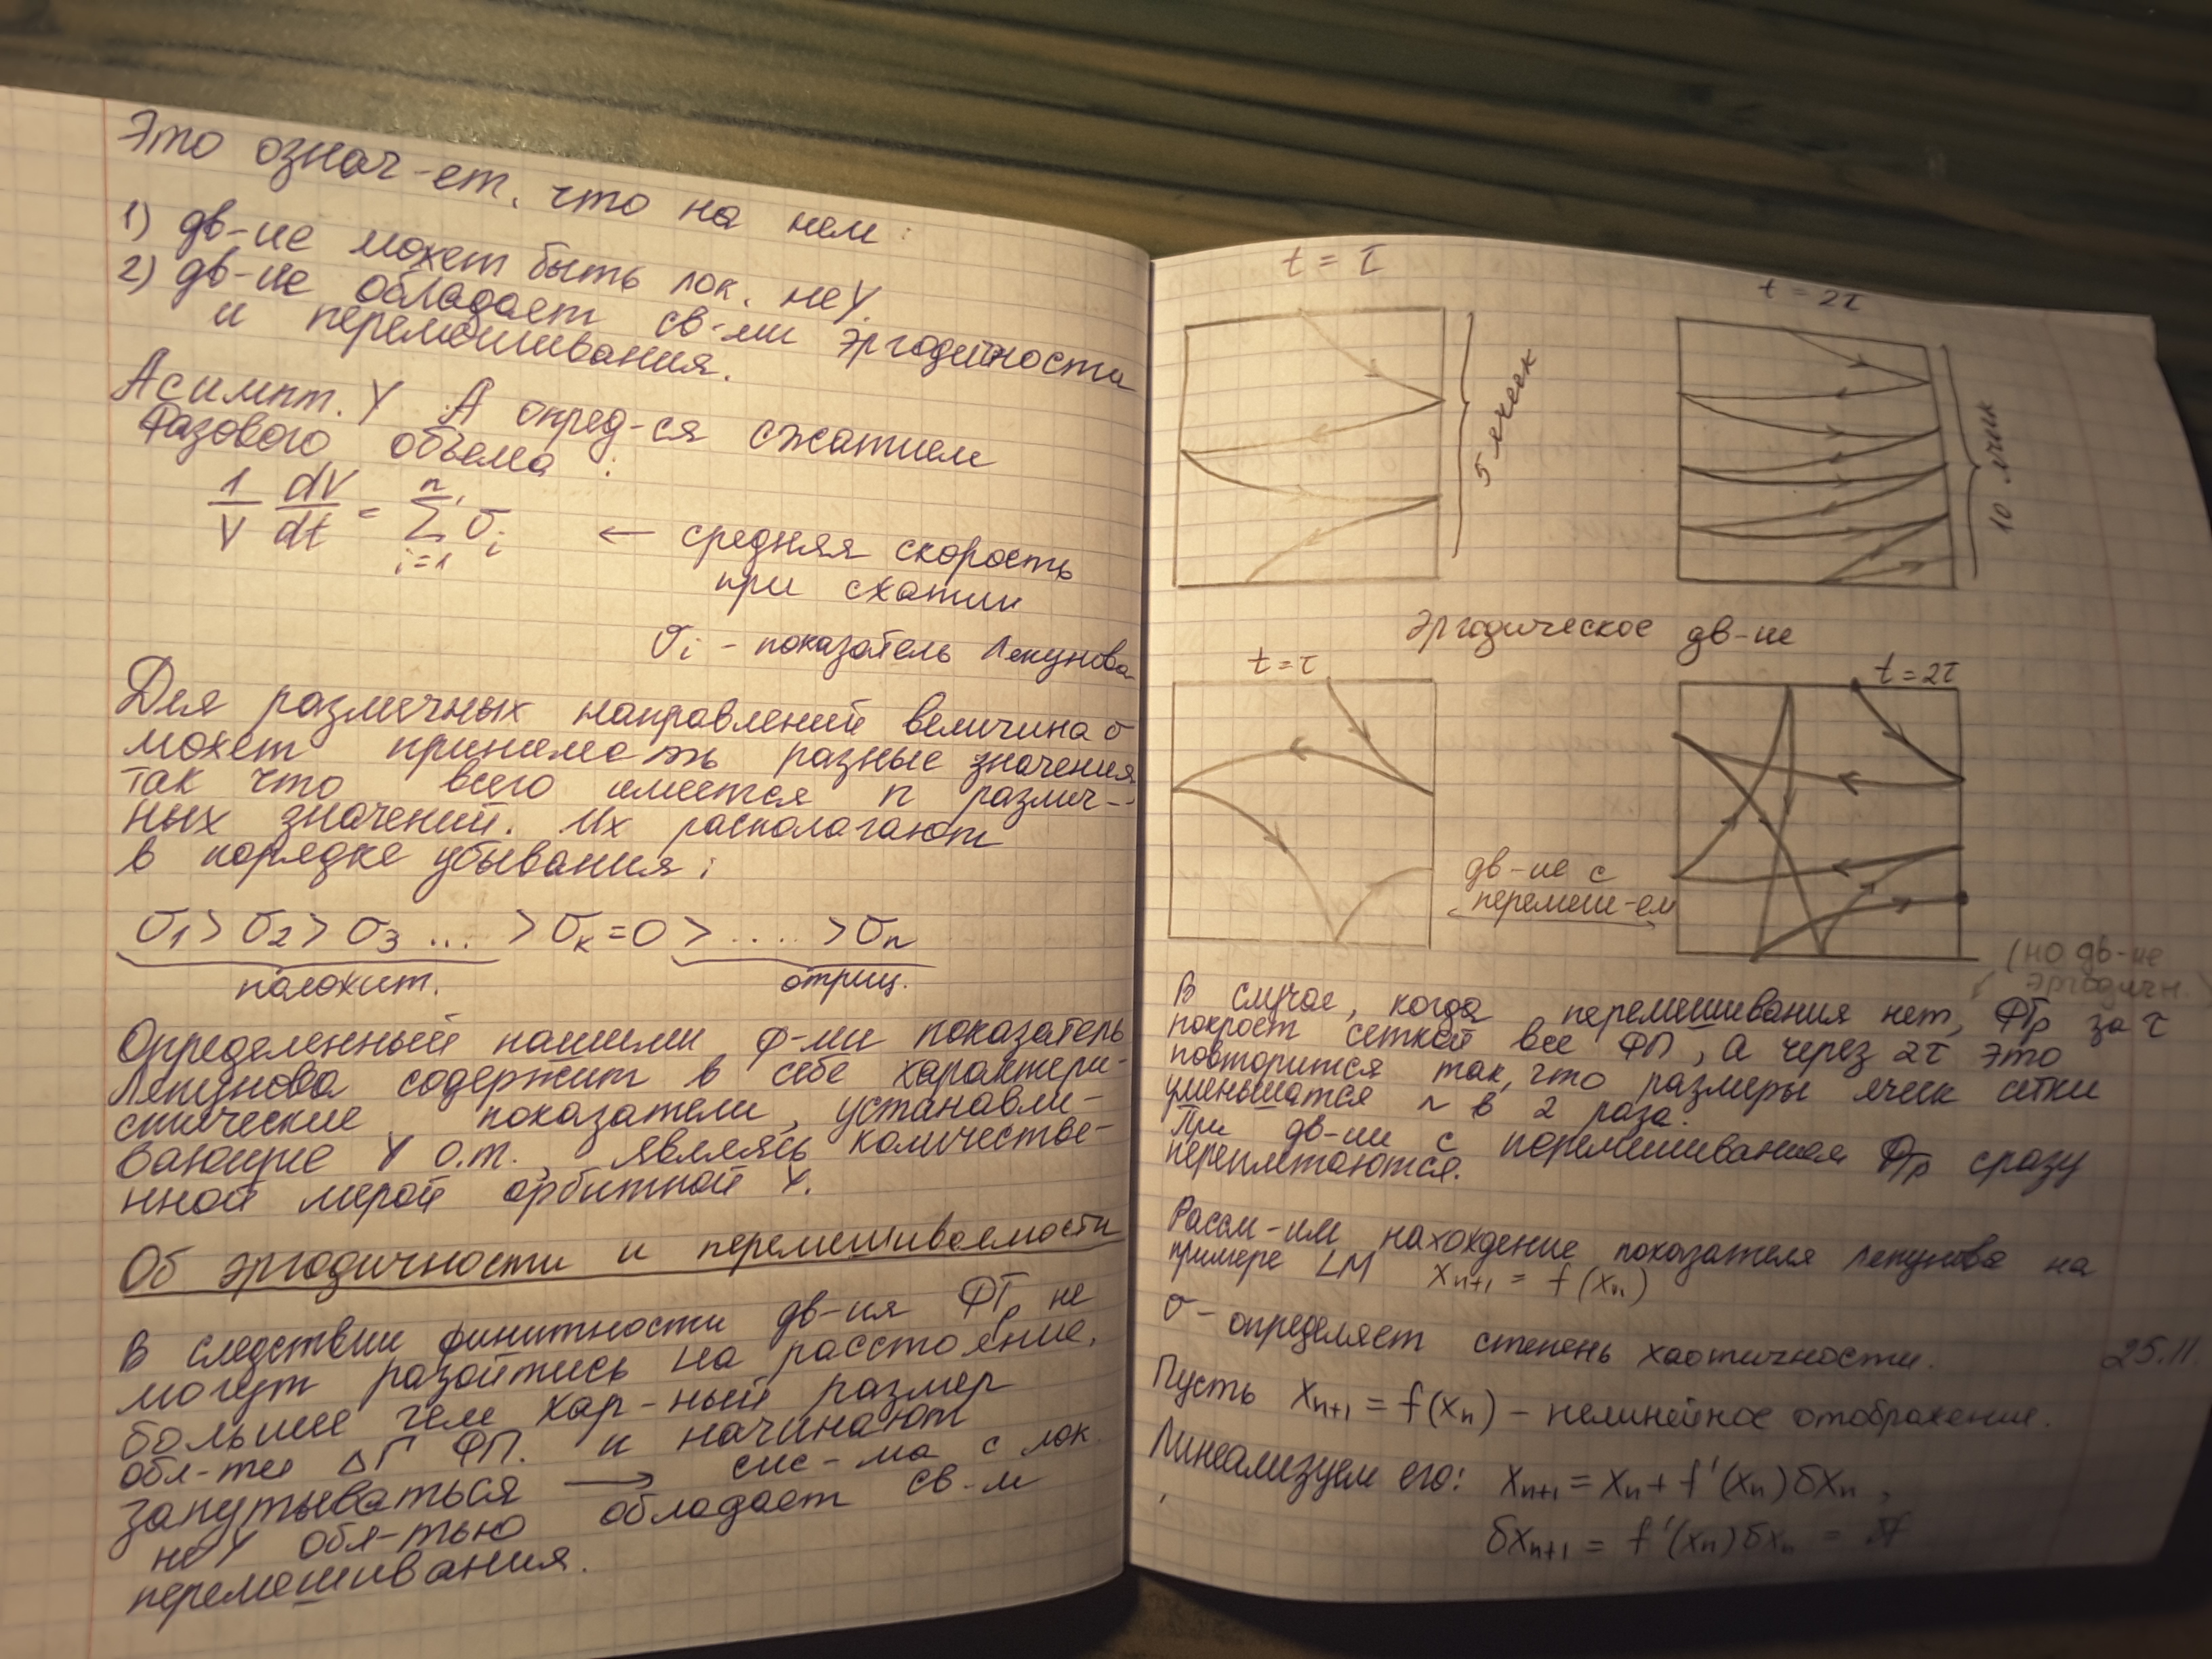 Это означ-ет, что на нем:
1) дв-ие может быть лок. неУ.
2) дв-ие обладает св-ми эргодичности
и перемешивания.
Асимпт. У А опред-ся сжатием
Фазового объема:
1/V dV/dt = n Σ i=1 σi ← средняя скорость
при сжатии
σi - показатель Ляпунова
Для различных направлений величина σ
может принимать разные значения
так что всего имеется n различ-
ных значений. Их располагают
в порядке убывания:
σ1 > σ2 > σ3 ... > σк = 0 > .... > σn
положит. отриц.
Определенный нашими ф-ми показатель
Ляпунова содержит в себе характери-
стические показатели, устанавли-
вающие У о.т., являясь количестве-
нной мерой орбитной У.
Об эргодичности и перемешиваемости
В следствии финитности дв-ия ФТр не
могут разойтись на расстояние,
больше чем хар-ный размер
обл-ти ΔГ ФП. и начинают
запутываться → сис-ма с лок.
неУ обл-тью обладает св-м
перемешивания.
t = τ
t = 2τ
5 ячеек
10 ячеек
Эргодическое дв-ие
t = τ
t = 2τ
дв-ие с
перемеш-ем
(но дв-ие
эргодичн.
В случае, когда перемешивания нет, ФТр за τ
покроет сеткой все ФП, а через 2τ это
повторится так, что размеры ячеек сетки
уменьшатся ~ в 2 раза.
При дв-ии с перемешиванием ФТр сразу
переплетаются.
Рассм-им нахождение показателя Ляпунова на
примере LM xn+1 = f(xn)
σ - определяет степень хаотичности.
25.11.
Пусть xn+1 = f(xn) - нелинейное отображение.
Линеализуем его: xn+1 = xn + f'(xn)δxn,
δxn+1 = f'(xn)δxn =